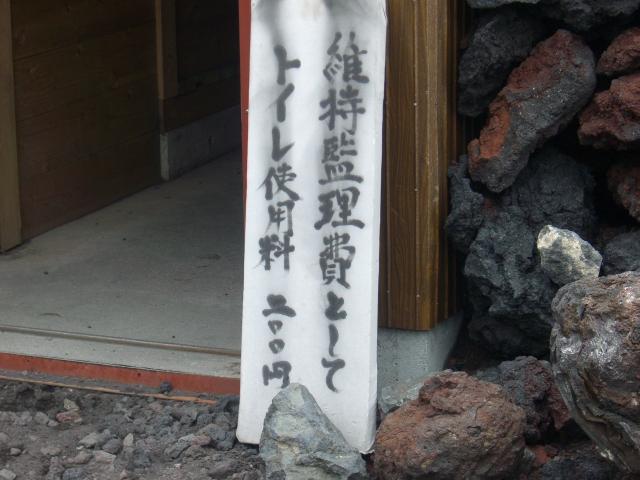 維持監理費として
トイレ使用料 二〇〇円